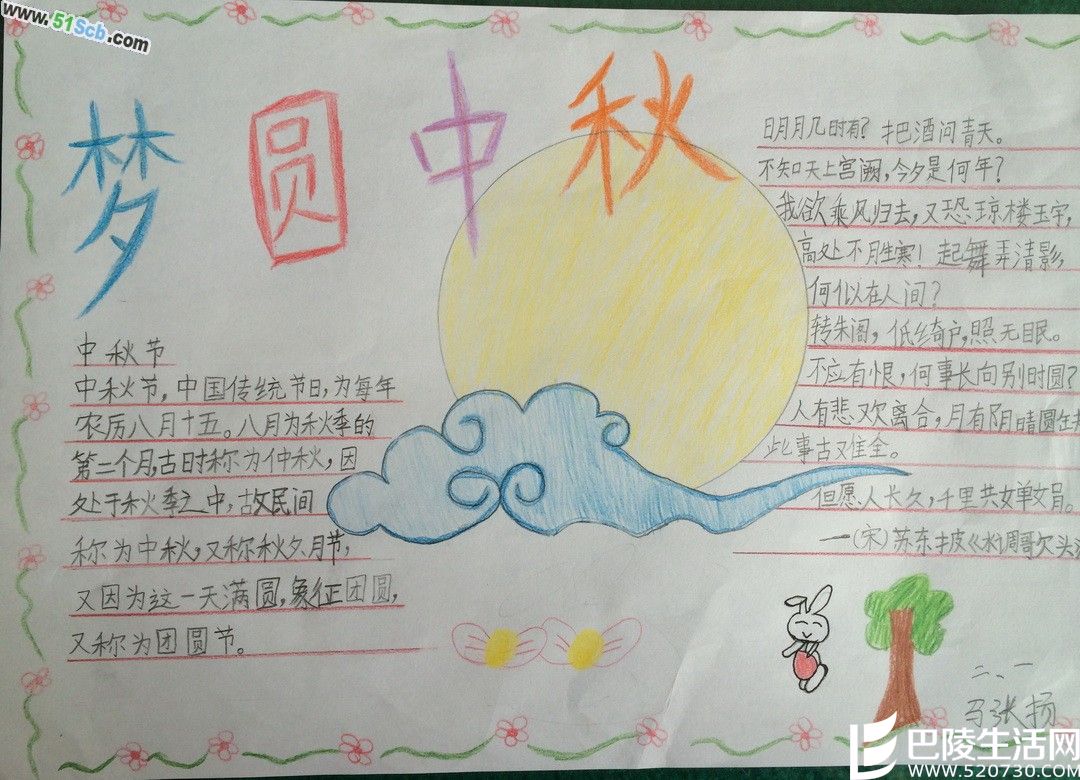 www.51Scb.com
梦圆中秋
中秋节
中秋节，中国传统节日，为每年
农历八月十五。八月为秋季的
第二个月，古时称为仲秋，因
处于秋季之中，故民间
称为中秋，又称秋夕、月节，
又因为这一天满圆，象征团圆，
又称为团圆节。
明月几时有？把酒问青天。
不知天上宫阙，今夕是何年？
我欲乘风归去，又恐琼楼玉宇，
高处不胜寒！起舞弄清影，
何似在人间？
转朱阁，低绮户，照无眠。
不应有恨，何事长向别时圆？
人有悲欢离合，月有阴晴圆缺
此事古难全。
但愿人长久，千里共婵娟。
—（宋）苏东坡《水调歌头
二、一
马张扬
巴陵生活网
www.520730.com